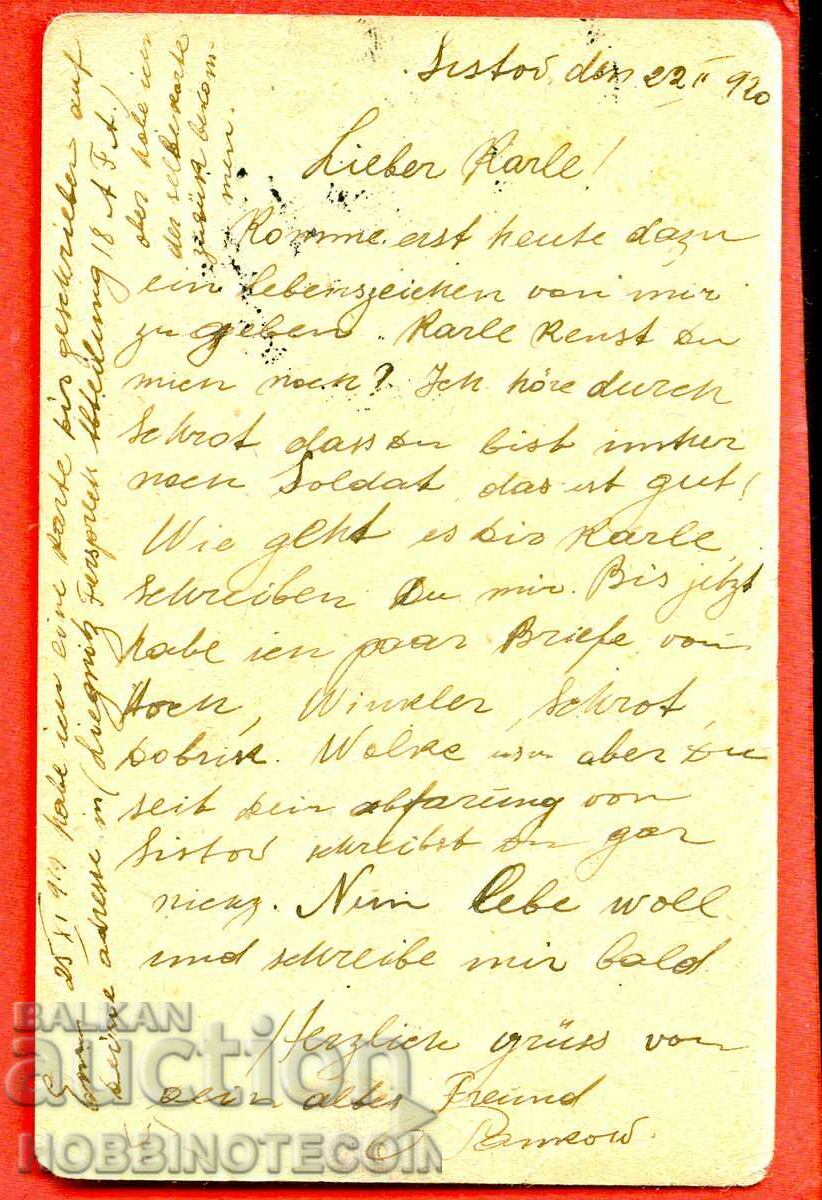 Sistov, den 22 II 920
Lieber Karle!
Komme erst heute dazu
ein lebenszeichen von mir
zu geben. Karle kenst Du
mich noch? Ich höre durch
Schrot dass Du bist immer
noch Soldat, das ist gut!
Wie geht es Dir Karle,
schreiben Du mir. Bis jetzt
habe ich paar Briefe von
Hoch, Winkler, Schrot,
Dobrik. Wolke usw aber Du
seit Dein abfarung von
Sistov schreibst Du gar
nichz. Nun lebe woll
und schreibe mir bald
Herzlich grüss von
dein altes Freund
Pankow.
25 XI 919 habe ich eine Karte Dir geschrieben auf
deine adresse in (Liegnitz Fersprech Abteilung 18 A F A)
aber habe ich
der selbe Karte
zurück bekom-
men.
BALKAN
auction
HOBBINOTECOIN